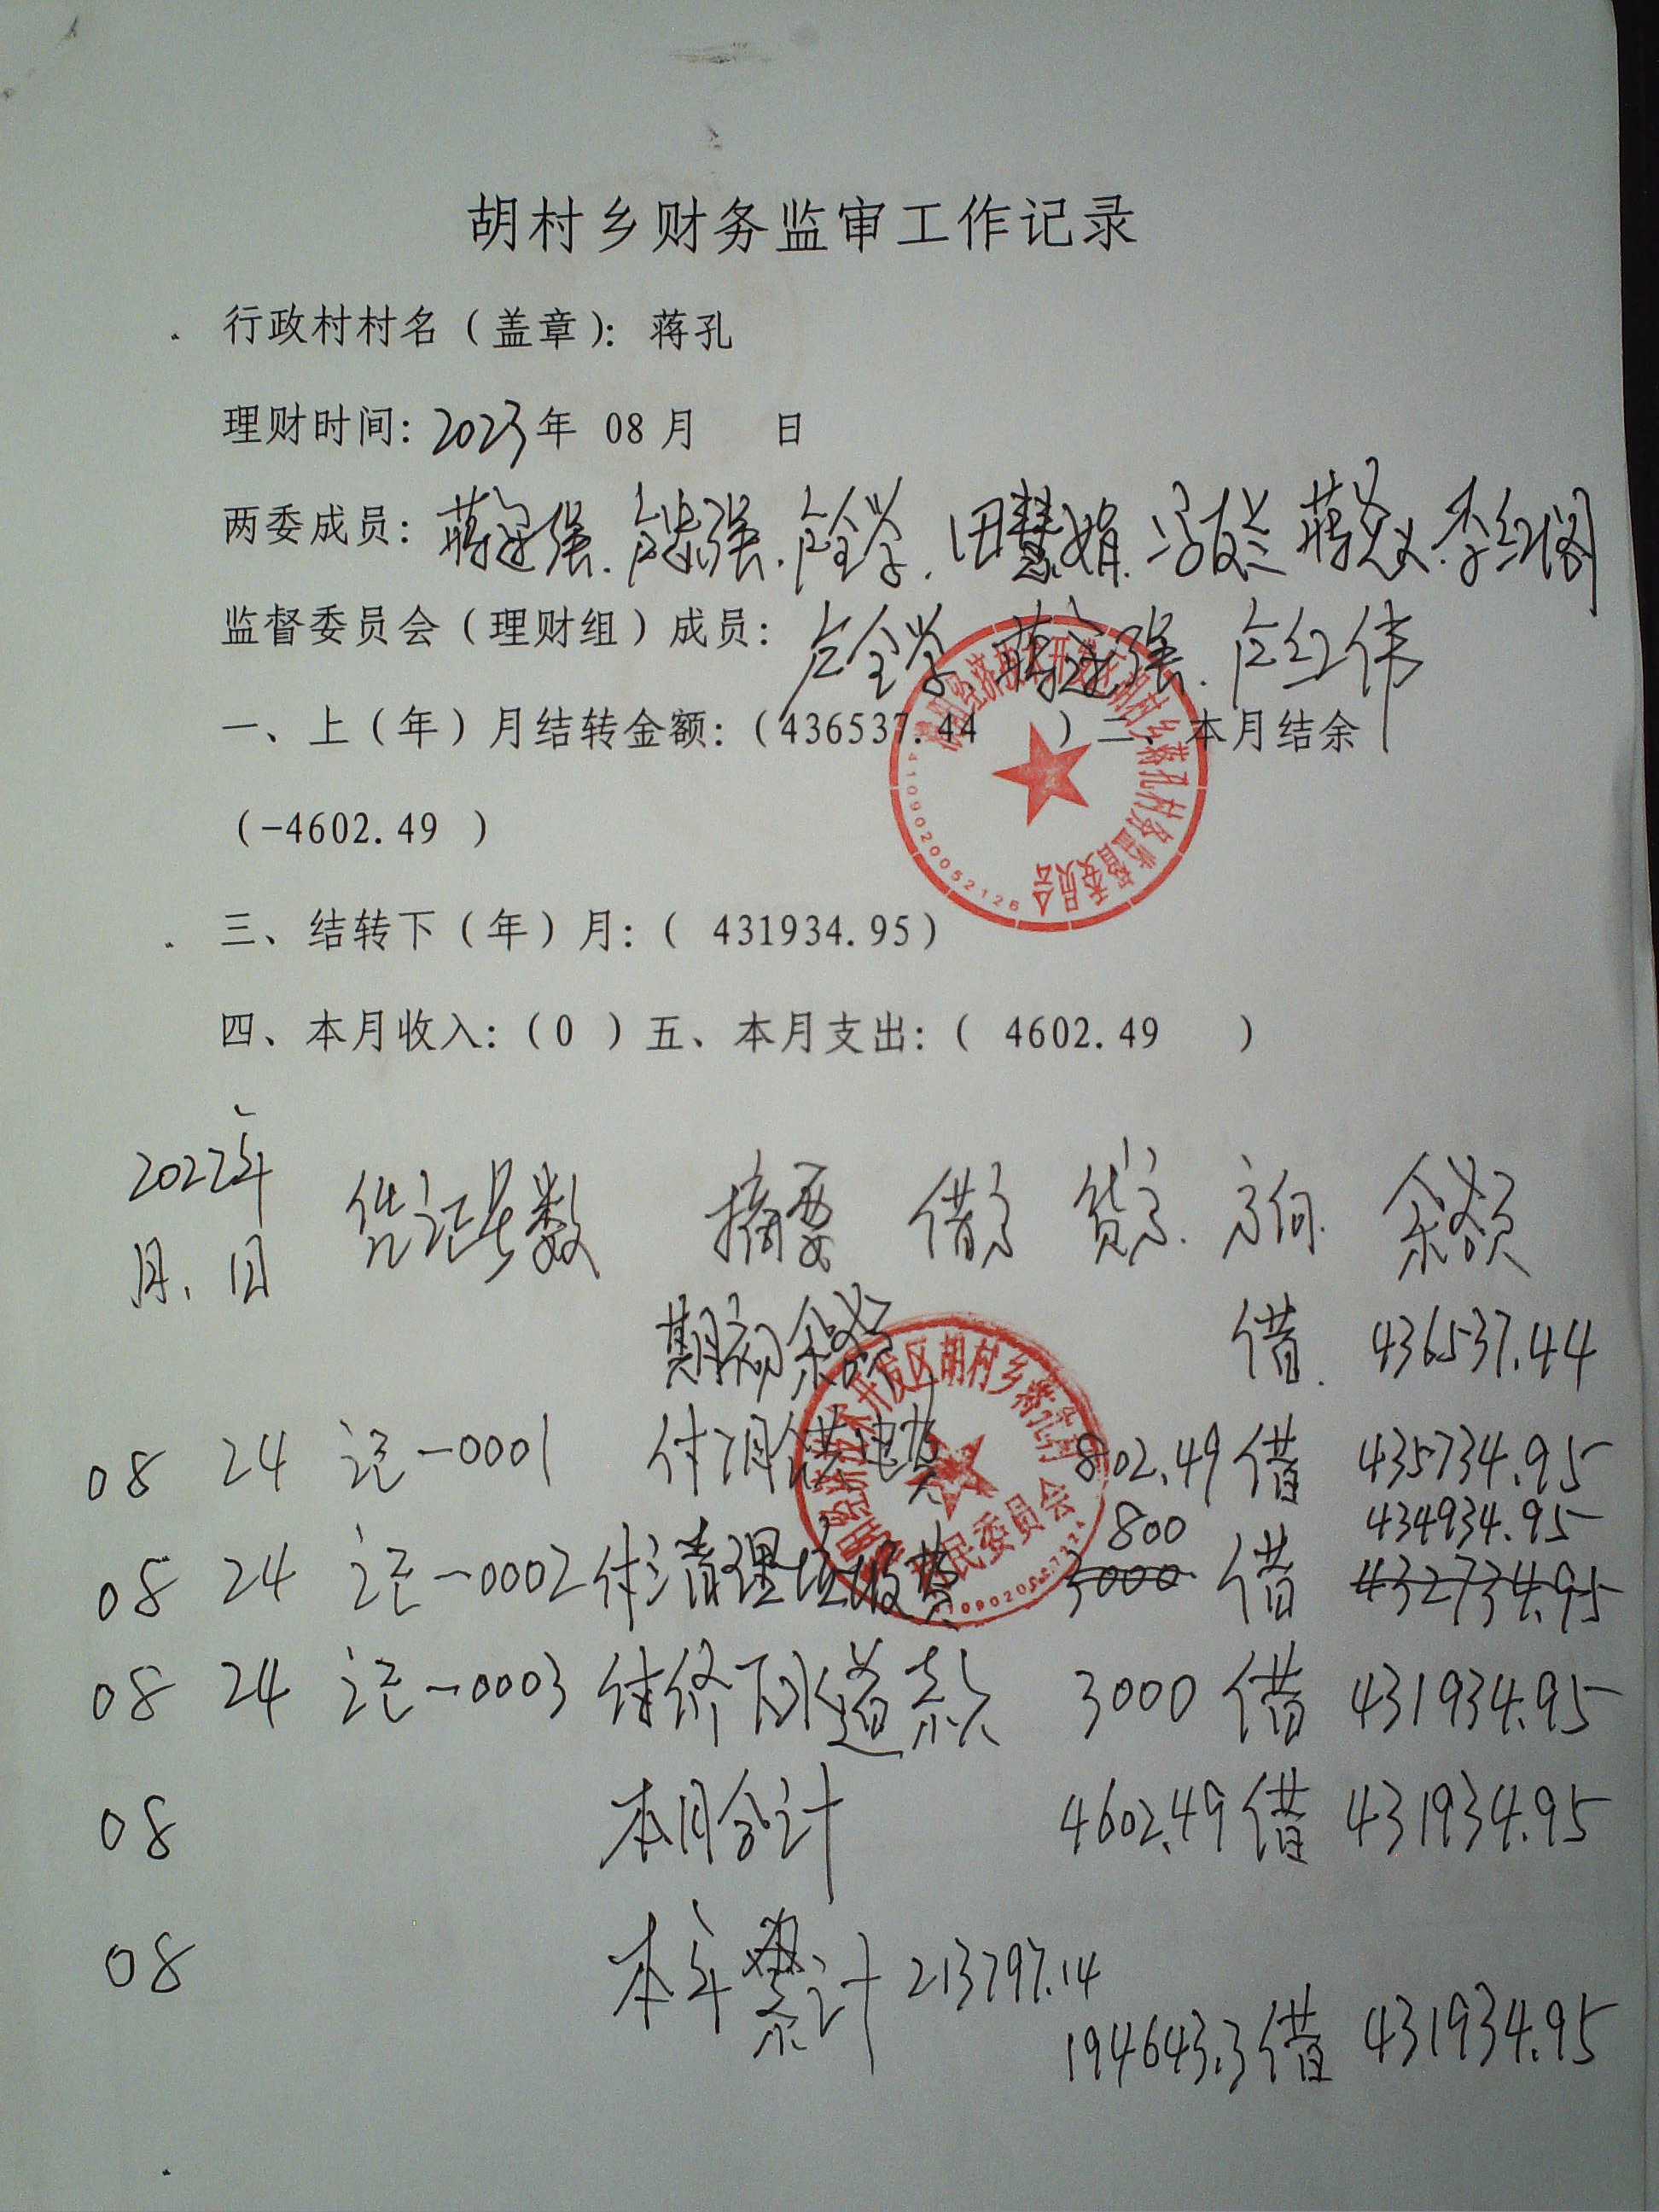 胡村乡财务监审工作记录
行政村村名（盖章）：蒋孔
理财时间：2023年 08月 日
两委成员：蒋运强、卢忠强、卢全学、田慧娟、冯友兰 蒋忠义、李红阁
监督委员会（理财组）成员：卢全学、蒋运强、卢红伟
一、上（年）月结转金额：（436537.44 ）二、本月结余
（-4602.49 ）
三、结转下（年）月：（ 431934.95）
四、本月收入：（0 ）五、本月支出：（ 4602.49 ）
2022年
月、日 凭证号数 摘要 借方 贷方 方向 余额
期初余额 借 436537.44
08 24 记-0001 付7月供电费 802.49 借 435734.95
800 434934.95
08 24 记-0002 付清理垃圾费 3000 借 432734.95
08 24 记-0003 付修下水道款 3000 借 431934.95
08 本月合计 4602.49 借 431934.95
08 本年累计 213797.14
194643.3 借 431934.95
经济技术开发区胡村乡蒋孔村务监督委员会
4109020052126
开发区胡村乡蒋孔村
村民委员会